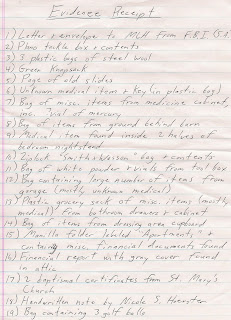 Evidence Receipt
1) Letter & envelope to MLH from FBI (SA
2) Plano tackle box & contents
3) 3 plastic bags of steel wool
4) Green Knapsack
5) Page of old slides
6) Unknown medical item & key (in plastic bag)
7) Bag of misc. items from medicine cabinet,
inc. vial of mercury
8) Bag of items from ground behind barn
9) Medical item found inside 2 halves of
bedroom nightstand
10) Ziplock "Smith & Wesson" bag & contents
11) Bag of white powder & vials from tool box
12) Bag containing large number of items from
garage (mostly unknown medical)
13) Plastic grocery sack of misc. items (mostly
medical) from bathroom drawers & cabinet
14) Bag of items from dressing area cupboard
15) Manilla folder labeled "Apartments" &
containing misc. financial documents found
16) Financial report with gray cover found
in attic
17) 2 baptismal certificates from St. Mary's
Church
18) Handwritten note by Nicole S.
19) Bag containing 3 golf balls